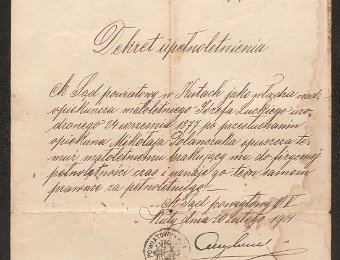 Dekret upełnoletnienia
Ck Sąd powiatowy w Kutach jako władza nad-
opiekuńcza małoletniego Józefa Łuckiego uro-
dzonego 24 września 1877 po przesłuchaniu
opiekuna Mikołaja Polańczuka opuszcza te-
muż małoletniemu brakujący mu do fizycznej
pełnoletności czas i uznaje go tem samem
prawnie za pełnoletniego.
Ck Sąd powiatowy O V
Kuty dnia 20 Lutego 1901